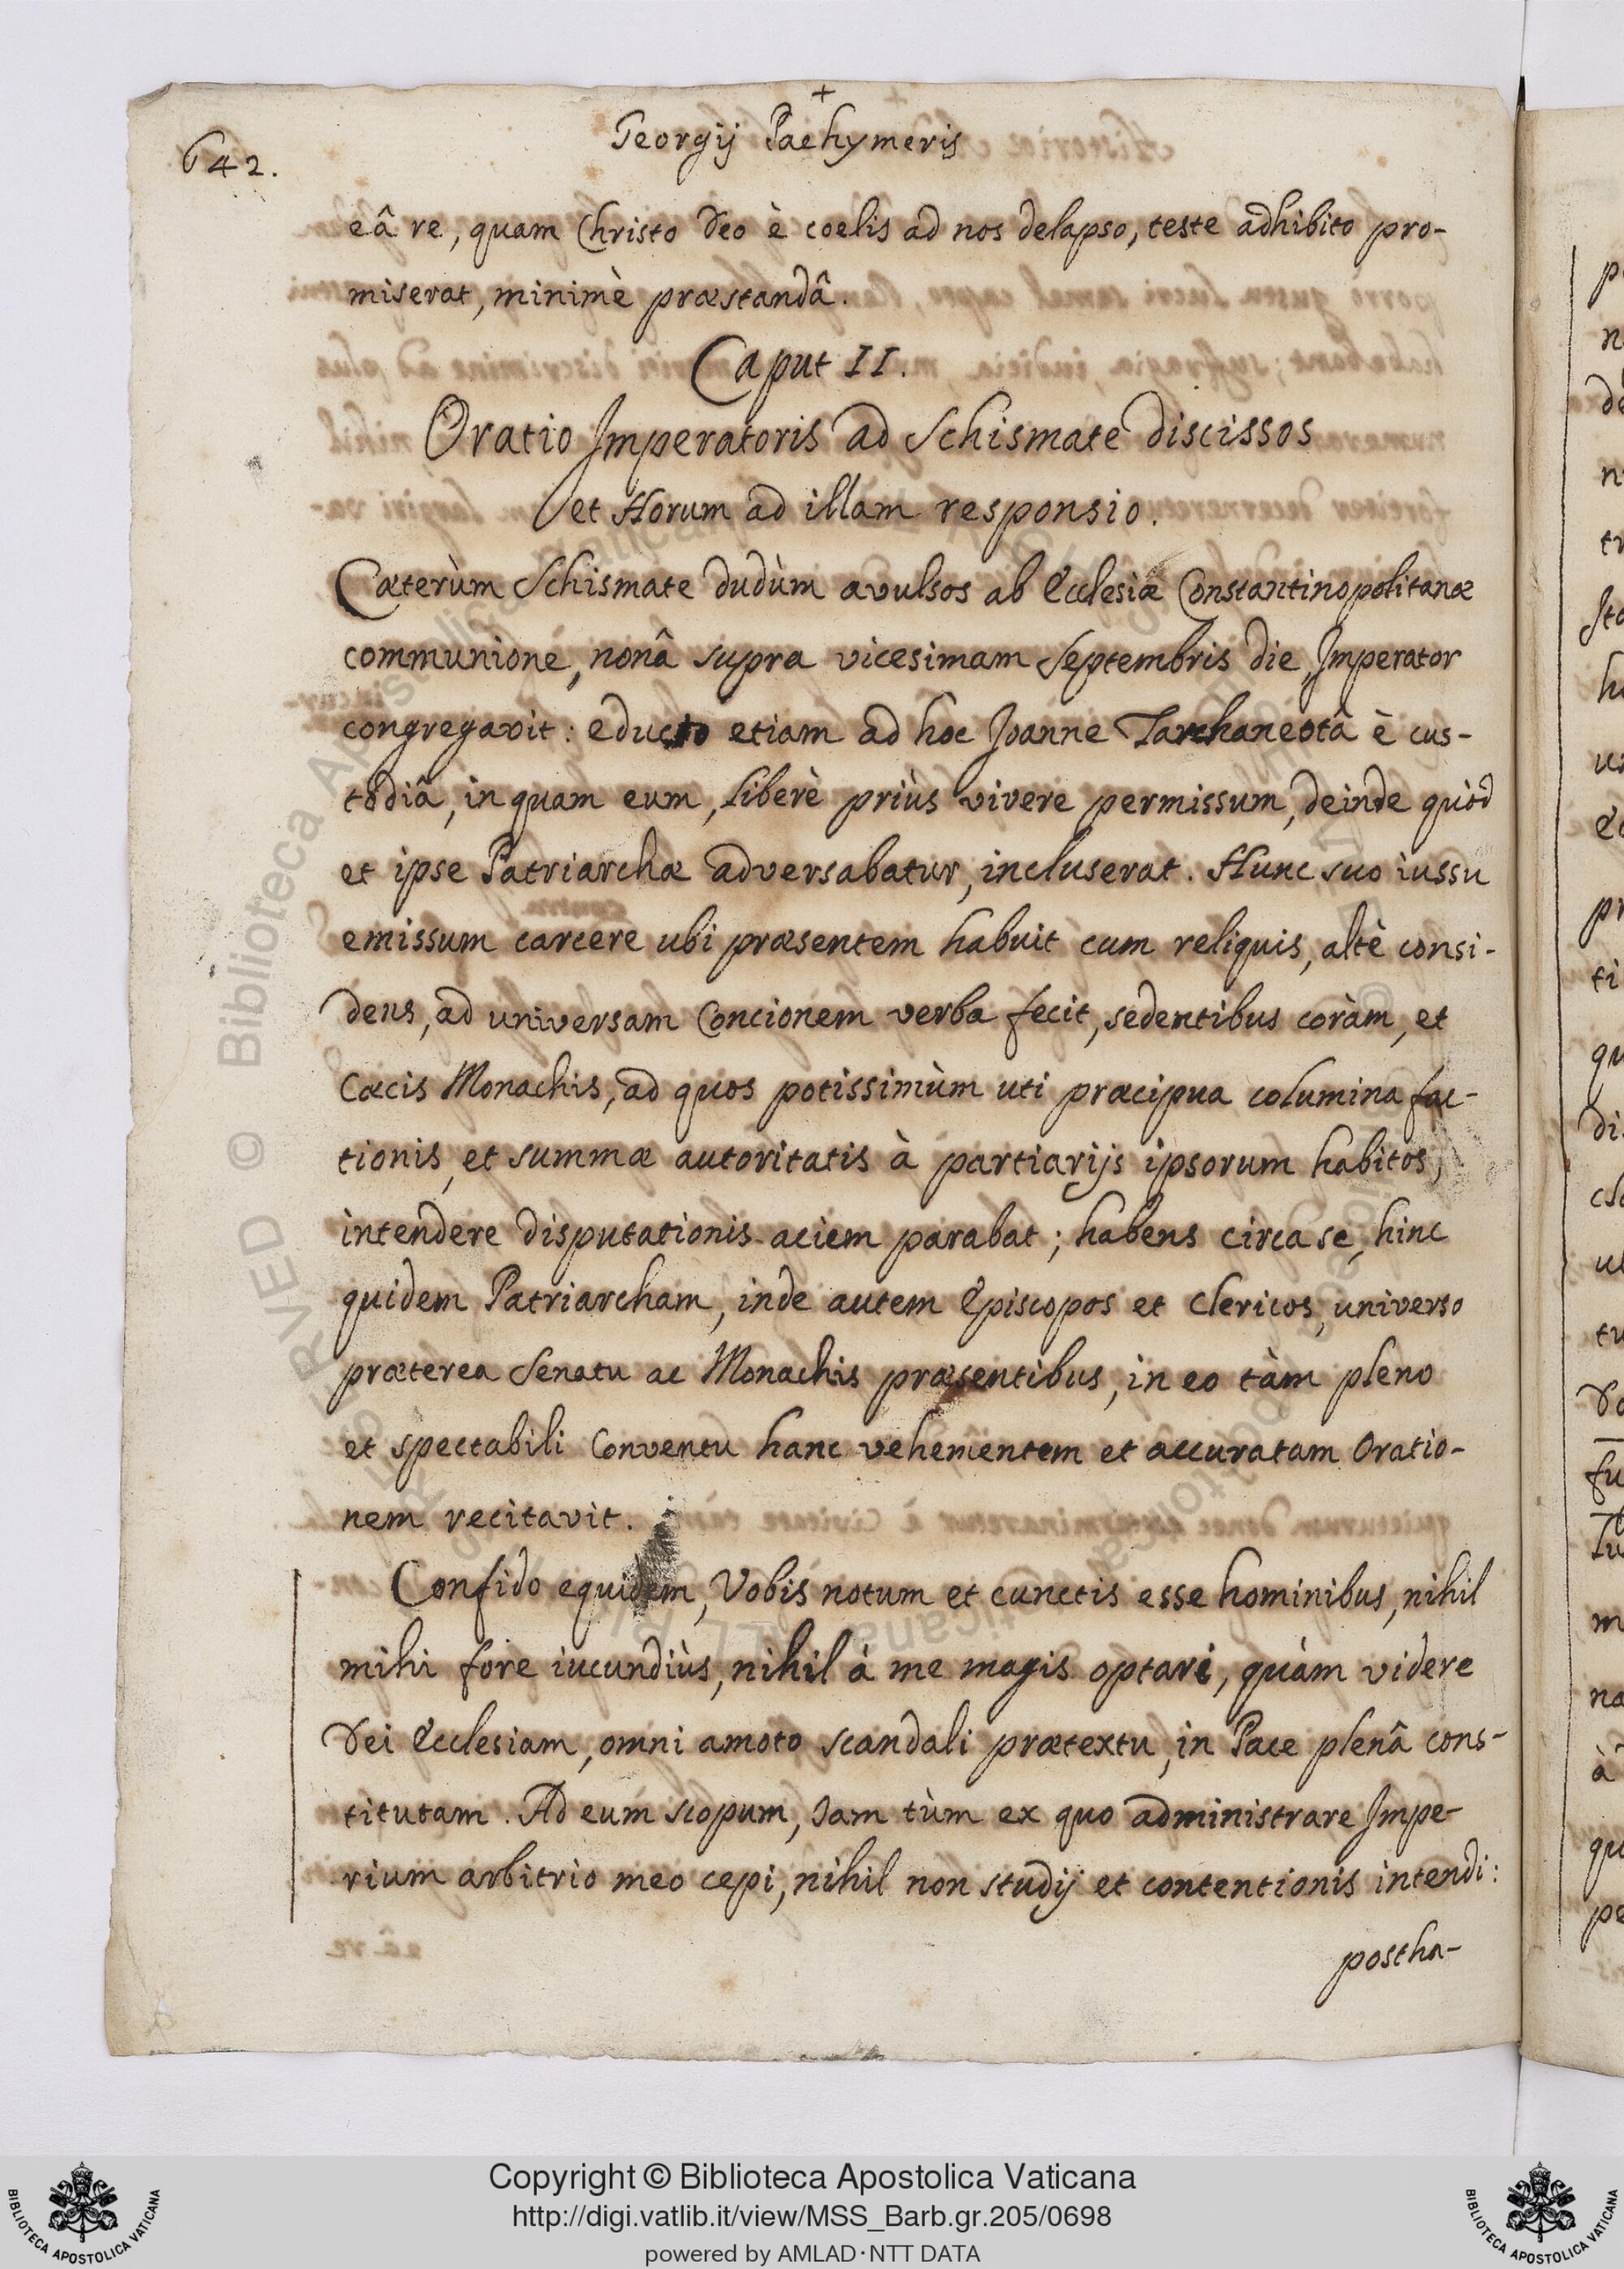 +
Georgij Pachymeris
642.
eâ re, quam Christo Deo è coelis ad nos delapso, teste adhibito pro-
miserat, minimè præstandâ.
Caput II.
Oratio Imperatoris ad Schismate discissos
et Horum ad illam responsio.
Cæterùm Schismate dudùm avulsos ab Ecclesiæ Constantinopolitanæ
communione, nonâ supra vicesimam Septembris die, Imperator
congregavit: educto etiam ad hoc Joanne Tarchaneotâ è cus-
todiâ, in quam eum, liberè priùs vivere permissum, deinde quòd
et ipse Patriarchæ adversabatur, incluserat. Hunc suo iussu
emissum carcere ubi præsentem habuit cum reliquis, altè consi-
dens, ad universam Concionem verba fecit, sedentibus coràm, et
Cæcis Monachis, ad quos potissimùm uti præcipua columina fac-
tionis, et summæ autoritatis à partiarijs ipsorum habitos,
intendere disputationis aciem parabat; habens circa se, hinc
quidem Patriarcham, inde autem Episcopos et Clericos, universo
præterea Senatu ac Monachis præsentibus, in eo tàm pleno
et spectabili Conventu hanc vehementem et accuratam Oratio-
nem recitavit.
Confido equidem, Vobis notum et cunctis esse hominibus, nihil
mihi fore iucundiùs, nihil à me magis optari, quàm videre
Dei Ecclesiam, omni amoto scandali prætextu, in Pace plenâ cons-
titutam. Ad eum scopum, Jam tùm ex quo administrare Impe-
rium arbitrio meo cepi, nihil non studij et contentionis intendi:
postha-
Copyright © Biblioteca Apostolica Vaticana
http://digi.vatlib.it/view/MSS_Barb.gr.205/0698
powered by AMLAD·NTT DATA
BIBLIOTECA APOSTOLICA VATICANA
BIBLIOTECA APOSTOLICA VATICANA